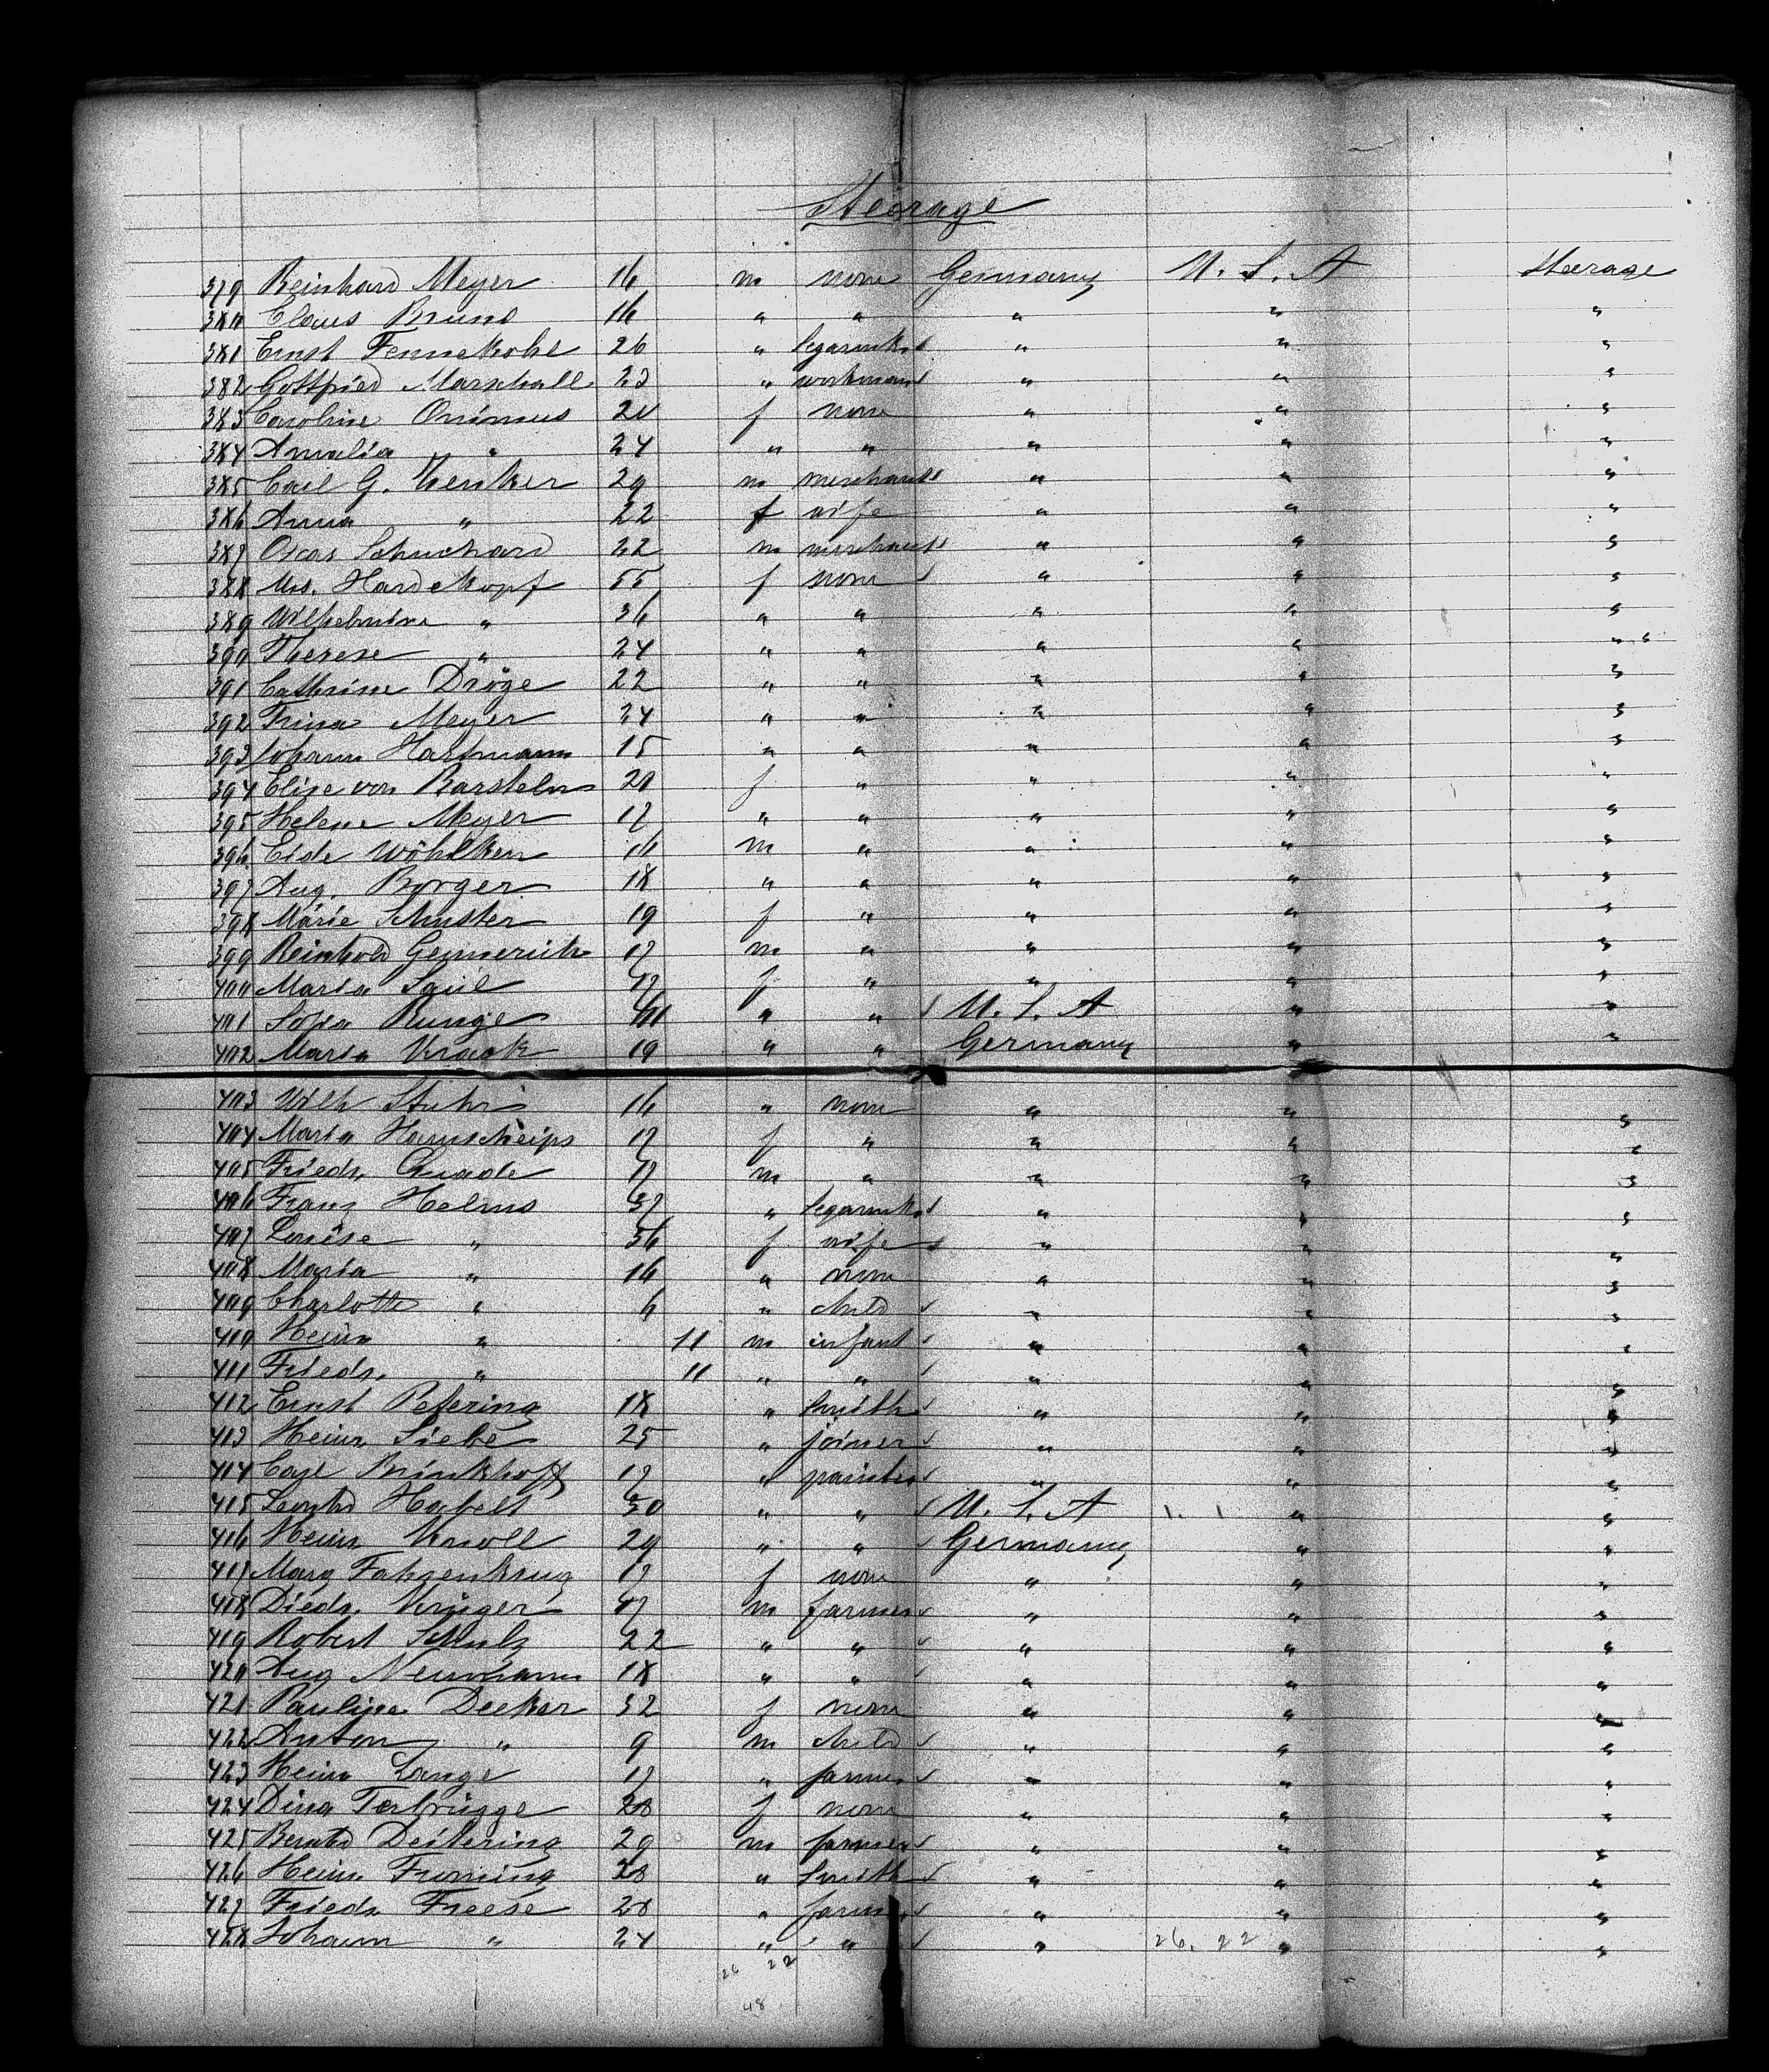 Steerage
379 Reinhard Meyer 16 m none Germany U. S. A Steerage
380 Claus Bruns 16 " " " " "
381 Ernst Fennekohl 26 " segarmkr " " "
382 Gottfried Marschall 23 " workman " " "
383 Caroline Onimus 20 f none " " "
384 Amalia " 24 " " " " "
385 Carl G. Henker 29 m merchant " " "
386 Anna " 22 f wife " " "
387 Oscar Schuchard 22 m merchant " " "
388 Mrs. Hardekopf 55 f none " " "
389 Wilhelmine " 36 " " " " "
390 Therese " 24 " " " " "
391 Cathrine Dröge 22 " " " " "
392 Trina Meyer 24 " " " " "
393 Johann Hartmann 15 " " " " "
394 Elise von Barsteln 20 f " " " "
395 Helene Meyer 17 " " " " "
396 Eide Wöhlken 16 m " " " "
397 Aug. Borger 18 " " " " "
398 Marie Schuster 19 f " " " "
399 Reinhold Gemmerich 17 m " " " "
400 Maria f " " " "
401 Sofia Runge " " U. S. A " "
402 Maria Krack 19 " " Germany " "
403 Wilh Stuhr 16 " none " " "
404 Maria Harnscheips 17 f " " " "
405 Friedr. Quade 17 m " " " "
406 Franz Helms 37 " segarmkr " " "
407 Louise " 36 f wife " " "
408 Maria " 16 " none " " "
409 Charlotte " 6 " child " " "
410 Heinr " 11 m infant " " "
411 Friedr. " 11 " " " " "
412 Ernst Petering 18 " smith " " "
413 Heinr. Siebe 25 " joiner " " "
414 Carl Brinkhoff 17 " painter " " "
415 Leonhd Habelt 30 " " U. S. A " "
416 Heinr. Knoll 29 " " Germany " "
417 Marg Fahrenkrug 17 f none " " "
418 Diedr. Krüger 47 m farmer " " "
419 Robert Schulz 22 " " " " "
420 Aug Neumann 18 " " " " "
421 Pauline Decker 32 f none " " "
422 Anton " 9 m child " " "
423 Heinr Lange 17 " farmer " " "
424 Dina Terbrügge 28 f none " " "
425 Bernhd Deitering 29 m farmer " " "
426 Heinr. Froning 28 " smith " " "
427 Friedr Freese 28 " farmer " " "
428 Johann " 24 " " " 26. 22 " "
26 22
48